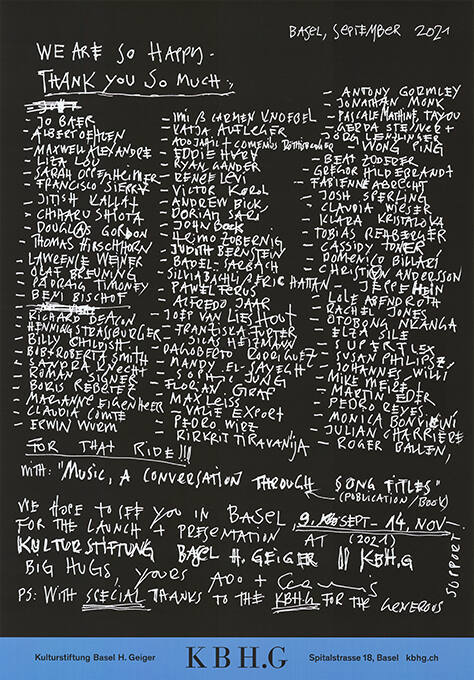 BASEL, SEPTEMBER 2021
WE ARE SO HAPPY -
THANK YOU SO MUCH:
- JO BAER
- ALBERT OEHLEN
- MAXWELL ALEXANDRE
- LIZA LOU
- SARAH OPPENHEIMER
- FRANCISCO SIERRA
- JITISH KALLAT
- CHIHARU SHIOTA
- DOUGLAS GORDON
- THOMAS HIRSCHHORN
- LAWRENCE WEINER
- OLAF BREUNING
- PADRAIG TIMONEY
- BENI BISCHOF
- RICHARD DEACON
- HENNING STRASSBURGER
- BILLY CHILDISH
- BOB + ROBERTA SMITH
- SANDRA KNECHT
- ROMAN SIGNER
- BORIS REBETEZ
- MARIANNE EIGENHEER
- CLAUDIA COMTE
- ERWIN WURM
- IMI & CARMEN KNOEBEL
- KATJA AUFLEGER
- EDDIE HARA
- RYAN GANDER
- RENEE LEVI
- VICTOR KOROL
- ANDREW BICK
- DORIAN SARI
- JOHN BOCK
- HEIMO ZOBERNIG
- JUDITH BERNSTEIN
- BADEL SARBACH
- SILVIA BÄCHLI + ERIC HATTAN
- PAWEL FERUS
- ALFREDO JAAR
- JOEP VAN LIESHOUT
- FRANZISKA FURTER
- SILAS HEIZMANN
- DAGOBERTO RODRIGUEZ
- MANDY EL-SAYEGH
- SOPHIE JUNG
- FLORIAN GRAF
- MAX LEISS
- VALIE EXPORT
- PEDRO WIRZ
- RIRKRIT TIRAVANIJA
- ANTONY GORMLEY
- JONATHAN MONK
- PASCALE MARTHINE TAYOU
- GERDA STEINER +
JÖRG LENZLINGER
- WONG PING
- BEAT ZODERER
- GREGOR HILDEBRANDT
- FABIENNE ABRECHT
- JOSH SPERLING
- CLAUDIA WIESER
- KLARA KRISTALOVA
- TOBIAS REHBERGER
- CASSIDY TONER
- DOMENICO BILLARI
- CHRISTIAN ANDERSSON
- JEPPE HEIN
- LOLE ABENDROTH
- RACHEL JONES
- OTOBONG NKANGA
- ELZA SILE
- SUPERFLEX
- SUSAN PHILIPSZ
- JOHANNES WILLI
- MIKE MEIRÉ
- MARTIN EDER
- PEDRO REYES
- MONICA BONVICINI
- JULIAN CHARRIÈRE
- ROGER BALLEN,
FOR THAT RIDE!!!
WITH: "MUSIC, A CONVERSATION THROUGH SONG TITLES"
(PUBLICATION / BOOK)
WE HOPE TO SEE YOU IN BASEL, 9. SEPT - 14. NOV -
FOR THE LAUNCH + PRESENTATION AT (2021)
KULTURSTIFTUNG BASEL H. GEIGER || KBH.G
BIG HUGS, YOURS ADO +
PS: WITH SPECIAL THANKS TO THE KBH.G FOR THE GENEROUS
SUPPORT
Kulturstiftung Basel H. Geiger KBH.G Spitalstrasse 18, Basel kbhg.ch